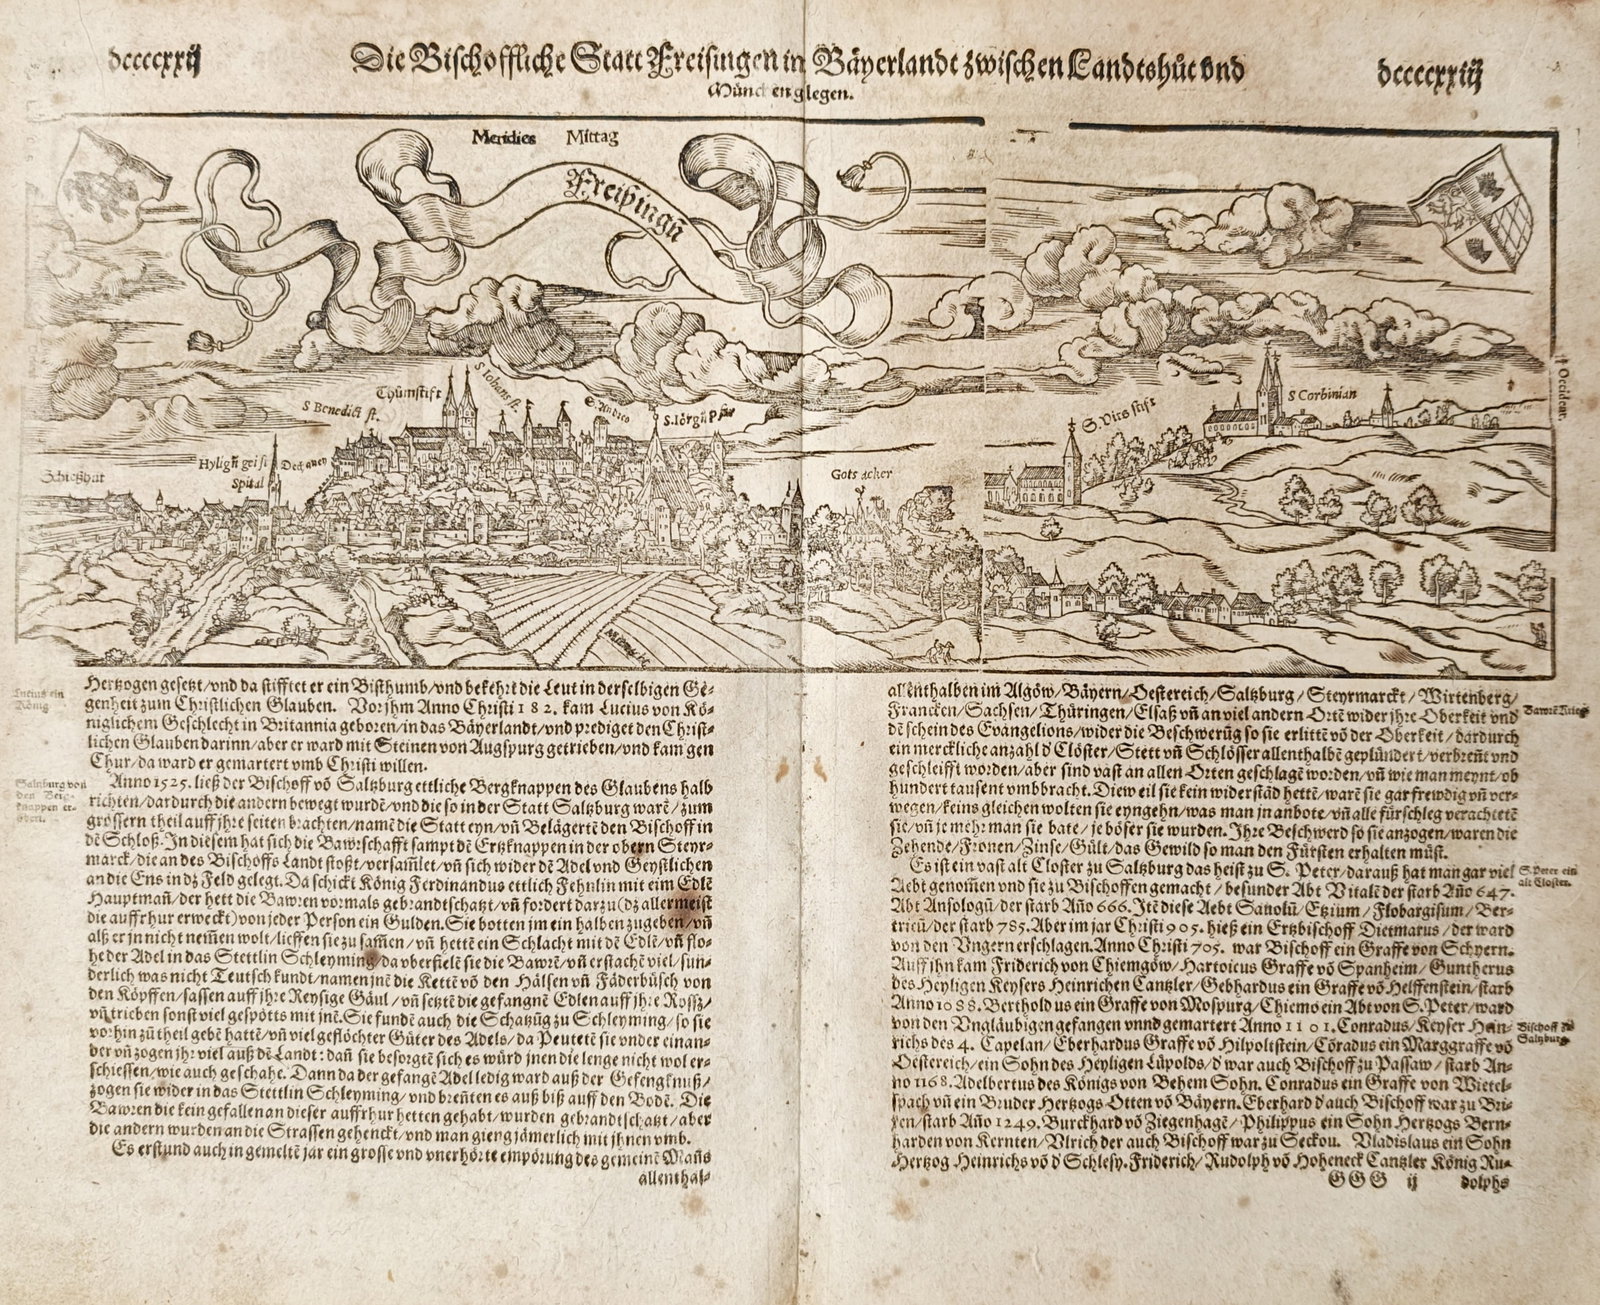 dccccxxij
Die Bischoffliche Statt Freisingen in Bäyerlandt zwischen Landtshůt vnd
dccccxxiij
München glegen.
Meridies Mittag
Freißingñ
Occident.
Thůmstift
S Johans st.
S Benedict st.
S. Andres
S. Jörgñ pfar
S Corbinian
S. Vits stift
Hyligñ geist
Spital
Dechaney
Schießhüt
Gots acker
Hertzogen gesetzt/vnd da stifftet er ein Bisthumb/vnd bekehrt die Leut in derselbigen Ge-
genheit zum Christlichen Glauben. Vor jhm Anno Christi 182. kam Lucius von Kö-
niglichem Geschlecht in Britannia geboren/in das Bäyerlandt/vnd prediget den Christ-
lichen Glauben darinn/aber er ward mit Steinen von Augspurg getrieben/vnd kam gen
Chur/da ward er gemartert vmb Christi willen.
Anno 1525. ließ der Bischoff vō Saltzburg ettliche Bergknappen des Glaubens halb
richten/dardurch die andern bewegt wurdē/vnd die so in der Statt Saltzburg warē/zum
grössern theil auff jhre seiten brachten/namē die Statt eyn/vñ Belägertē den Bischoff in
dē Schloß. In diesem hat sich die Bawrschafft sampt dē Ertzknappen in der obern Steyr-
marck/die an des Bischoffs Landt stoßt/versam̄let/vñ sich wider dē Adel vnd Geystlichen
an die Ens in dz Feld gelegt. Da schickt König Ferdinandus ettlich Fehnlin mit eim Edlē
Hauptmañ/der hett die Bawren vormals gebrandtschatzt/vñ fordert darzu (dz allermeist
die auffrhur erweckt) von jeder Person ein Gulden. Sie botten jm ein halben zugeben/vñ
alß er jn nicht nem̄en wolt/lieffen sie zu sam̄en/vñ hettē ein Schlacht mit dē Edlē/vñ flo-
he der Adel in das Stettlin Schleyming/da vberfielē sie die Bawrē/vñ erstachē viel/sun-
derlich was nicht Teutsch kundt/namen jnē die Kettē vō den Hälsen vñ Fäderbüsch von
den Köpffen/sassen auff jhre Reysige Gäul/vñ setztē die gefangnē Edlen auff jhre Rossz/
vñ trieben sonst viel gespötts mit jnē. Sie fundē auch die Schatzūg zu Schleyming/so sie
vorhin zū theil gebē hattē/vñ viel geflöchter Güter des Adels/da Peutetē sie vnder einan-
der vñ zogen jhr viel auß dē Landt: dañ sie besorgtē sich es würd jnen die lenge nicht wol er-
schiessen/wie auch geschahe. Dann da der gefangē Adel ledig ward auß der Gefengknuß/
zogen sie wider in das Stettlin Schleyming/vnd breñten es auß biß auff den Bodē. Die
Bawren die kein gefallen an dieser auffrhur hetten gehabt/wurden gebrandtschatzt/aber
die andern wurden an die Strassen gehenckt/vnd man gieng jämerlich mit jhnen vmb.
Es erstund auch in gemeltē jar ein grosse vnd vnerhörte empörung des gemeinē Mañs
allenthal-
Lucius ein
König.
Saltzburg von
den Berg-
knappen er-
obert.
allenthalben im Algöw/Bäyern/Oestereich/Saltzburg/Steyrmarckt/Wirtenberg/
Francken/Sachsen/Thüringen/Elsaß vñ an viel andern Ortē wider jhre Oberkeit vnd
dē schein des Evangelions/wider die Beschwerūg so sie erlittē vō der Oberkeit/dardurch
ein merckliche anzahl d' Clöster/Stett vñ Schlösser allenthalbē geplündert/verbreñt vnd
geschleifft worden/aber sind vast an allen Orten geschlagē worden/vñ wie man meynt/ob
hundert tausent vmbbracht. Die weil sie kein widerstād hettē/warē sie gar frewdig vñ ver-
wegen/keins gleichen wolten sie eyngehn/was man jn anbote/vñ alle fürschleg verachtetē
sie/vñ je mehr man sie bate/je böser sie wurden. Ihre Beschwerd so sie anzogen/waren die
Zehende/Fronen/Zinse/Gült/das Gewild so man den Fürsten erhalten müst.
Es ist ein vast alt Closter zu Saltzburg das heist zu S. Peter/darauß hat man gar viel
Aebt genom̄en vnd sie zu Bischoffen gemacht/besunder Abt Vitalē der starb Año 647.
Abt Ansologū/der starb Año 666. Itē diese Aebt Sauolū/Etzium/Flobargisum/Ber-
tricū/der starb 785. Aber im jar Christi 905. hieß ein Ertzbischoff Dietmarus/der ward
von den Vngern erschlagen. Anno Christi 705. war Bischoff ein Graffe von Schyern.
Auff ihn kam Friderich von Chiemgöw/Hartoicus Graffe vō Spanheim/Guntherus
des Heyligen Keysers Heinrichen Cantzler/Gebhardus ein Graffe vō Helffenstein/starb
Anno 1088. Bertholdus ein Graffe von Mospurg/Chiemo ein Abt von S. Peter/ward
von den Vngläubigen gefangen vnnd gemartert Anno 1101. Conradus/Keyser Hein-
richs des 4. Capelan/Eberhardus Graffe vō Hilpoltstein/Cōradus ein Marggraffe vō
Oestereich/ein Sohn des Heyligen Lüpolds/d' war auch Bischoff zu Passaw/starb An-
no 1168. Adelbertus des Königs von Behem Sohn. Conradus ein Graffe von Wietel-
spach vñ ein Bruder Hertzogs Otten vō Bäyern. Eberhard d' auch Bischoff war zu Bri-
xen/starb Año 1249. Burckhard vō Ziegenhagē/Philippus ein Sohn Hertzogs Bern-
harden von Kernten/Vlrich der auch Bischoff war zu Seckou. Vladislaus ein Sohn
Hertzog Heinrichs vō d' Schlesy. Friderich/Rudolph vō Hoheneck Cantzler König Ru-
GGG ij dolphs
Bawrē Krieg
S. Peter ein
alt Closter.
Bischoff zu
Saltzburg.